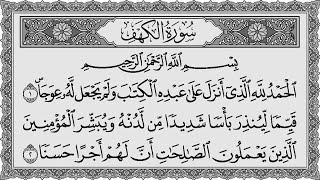 سُورَةُ الْكَهْفِ
بِسْمِ اللَّهِ الرَّحْمَٰنِ الرَّحِيمِ
الْحَمْدُ لِلَّهِ الَّذِي أَنزَلَ عَلَىٰ عَبْدِهِ الْكِتَابَ وَلَمْ يَجْعَل لَّهُ عِوَجًا ۜ ١
قَيِّمًا لِّيُنذِرَ بَأْسًا شَدِيدًا مِّن لَّدُنْهُ وَيُبَشِّرَ الْمُؤْمِنِينَ
الَّذِينَ يَعْمَلُونَ الصَّالِحَاتِ أَنَّ لَهُمْ أَجْرًا حَسَنًا ٢